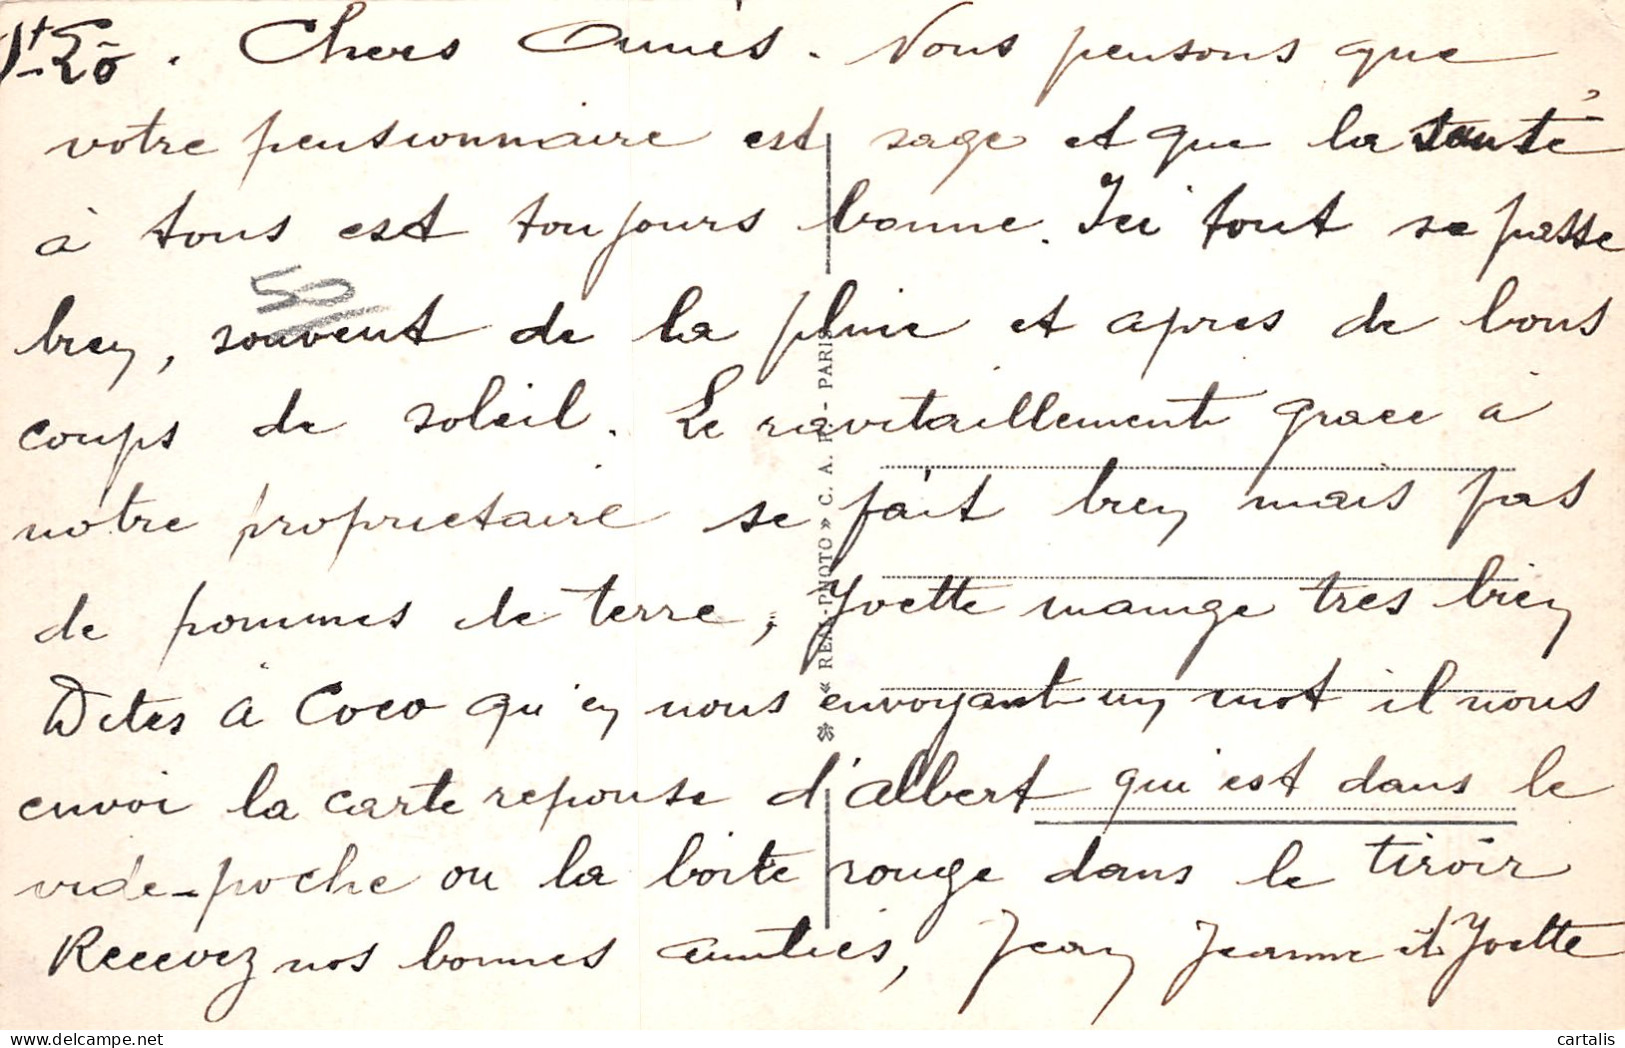 St Lô. Chers Amies. Nous pensons que
votre pensionnaire est sage et que la santé
à tous est toujours bonne. Ici tout se passe
bien, souvent de la pluie et apres de bons
50
coups de soleil. Le ravitaillement grace à
notre proprietaire se fait bien mais pas
de pommes de terre, Yvette mange tres bien
Dites à Coco qu'en nous envoyant un mot il nous
envoi la carte reponse d'Albert qui est dans le
vide-poche ou la boite rouge dans le tiroir
Recevez nos bonnes amities, Jean Jeanne et Yvette
« REAL-PHOTO » C. A. P. - PARIS
cartalis